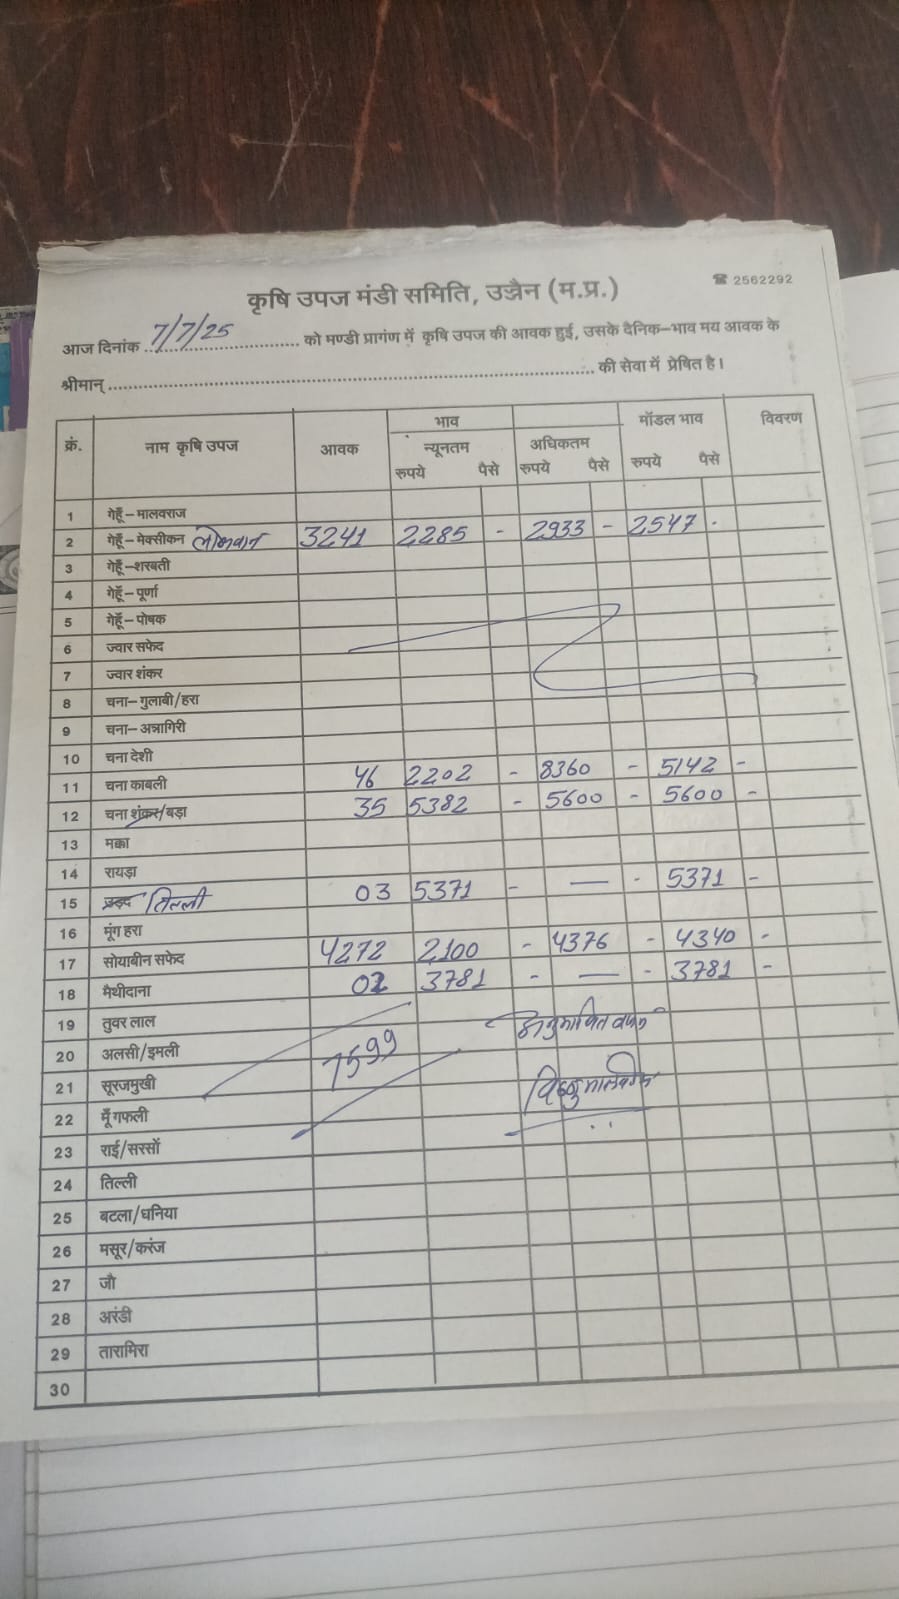 ☎ 2562292
कृषि उपज मंडी समिति, उज्जैन (म.प्र.)
आज दिनांक 7/7/25 को मण्डी प्रागंण में कृषि उपज की आवक हुई, उसके दैनिक–भाव मय आवक के
श्रीमान् की सेवा में प्रेषित है।
क्रं. नाम कृषि उपज आवक भाव न्यूनतम रुपये पैसे अधिकतम रुपये पैसे मॉडल भाव रुपये पैसे विवरण
1 गेहूँ–मालवराज
2 गेहूँ–मेक्सीकन लोकवान 3241 2285 - 2933 - 2547 -
3 गेहूँ–शरबती
4 गेहूँ–पूर्णा
5 गेहूँ–पोषक
6 ज्वार सफेद
7 ज्वार शंकर
8 चना–गुलाबी/हरा
9 चना–अन्नागिरी
10 चना देशी
11 चना काबली 46 2202 - 8360 - 5142 -
12 चना शंकर/बड़ा 35 5382 - 5600 - 5600 -
13 मक्का
14 रायड़ा
15 तिल्ली 03 5371 - — - 5371 -
16 मूंग हरा
17 सोयाबीन सफेद 4272 2100 - 4376 - 4340 -
18 मैथीदाना 02 3781 - — - 3781 -
19 तुवर लाल
20 अलसी/इमली 7599
21 सूरजमुखी
22 मूँगफली
23 राई/सरसों
24 तिल्ली
25 बटला/धनिया
26 मसूर/करंज
27 जौ
28 अरंडी
29 तारामिरा
30